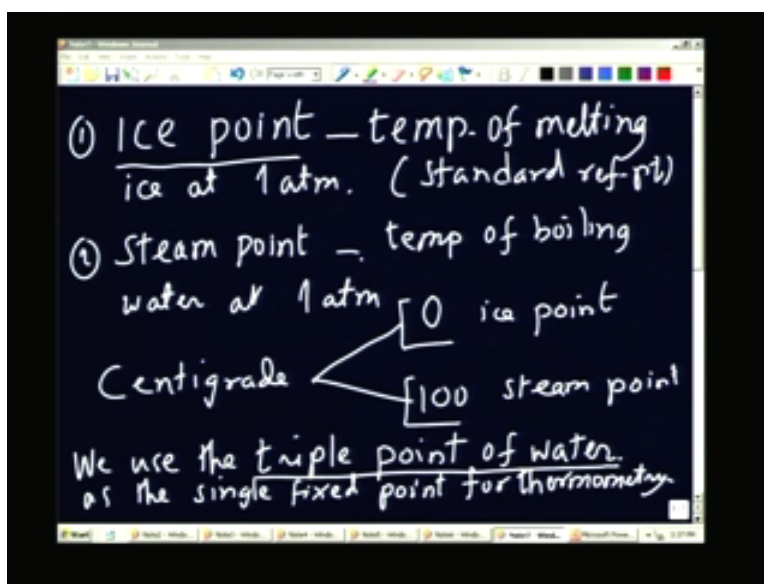 ① Ice point – temp. of melting
ice at 1 atm. (Standard ref. pt)
② Steam point – temp of boiling
water at 1 atm
0 ice point
Centigrade
100 steam point
We use the triple point of water.
as the single fixed point for thermometry.